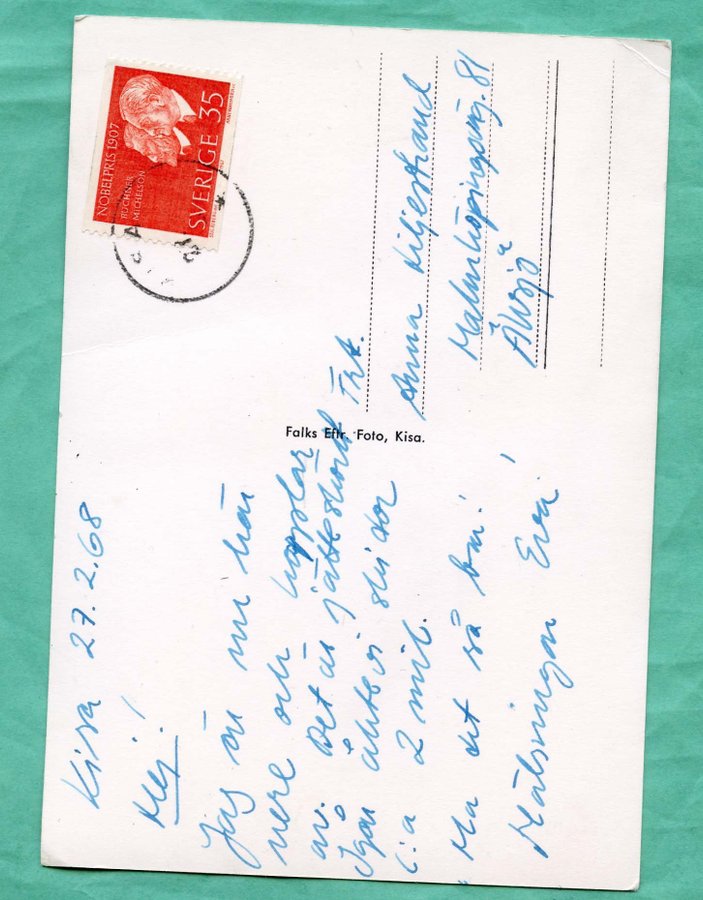 Kisa 27.2.68
Hej!
Jag är nu här
nere och kopplar
av. Det är jätteskönt
Igår åkte vi skidor
c:a 2 mil.
Ha det så bra!
Hälsningar Eva!
Falks Eftr. Foto, Kisa.
NOBELPRIS 1907
BUCHNER
MICHELSON
SVERIGE 35
Anna Liljestrand
Malmköpingsväg. 81
Älvsjö